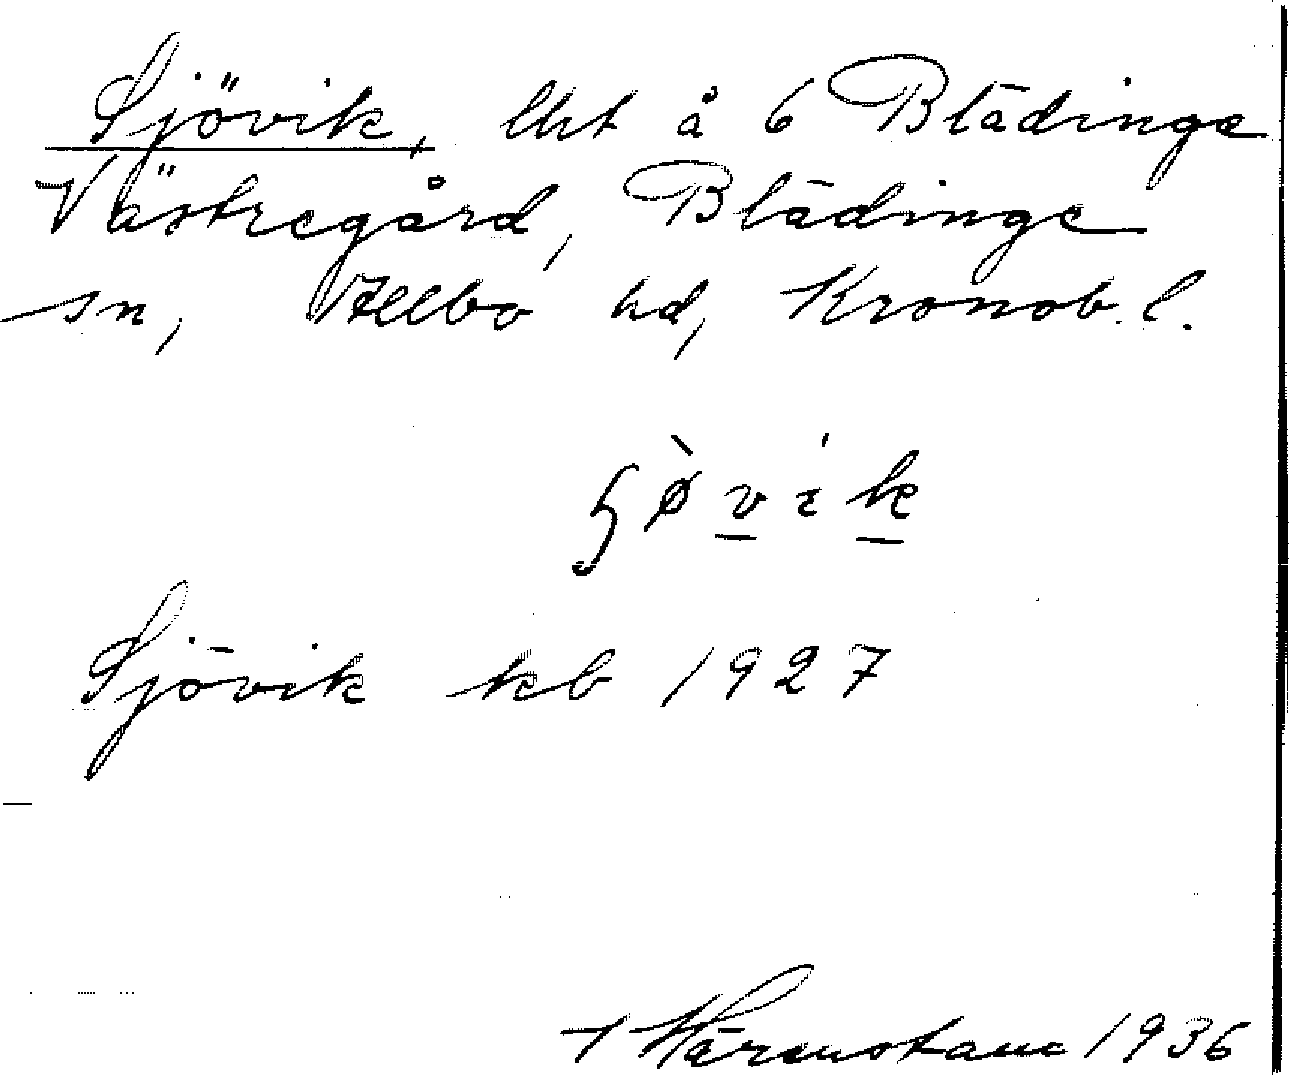 Sjövik, lht å 6 Blädinge
Västregård, Blädinge
sn, Allbo hd, Kronob. l.
Sjövik kb 1927
1936